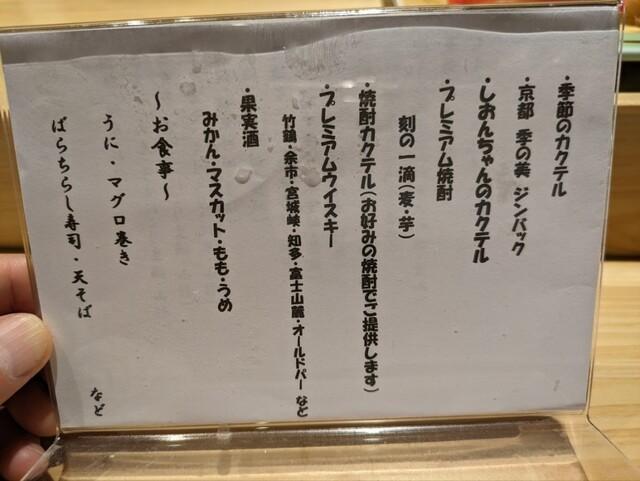 ・季節のカクテル
・京都 季の美 ジンバック
・しおんちゃんのカクテル
・プレミアム焼酎
刻の一滴(麦・芋)
・焼酎カクテル(お好みの焼酎でご提供します)
・プレミアムウイスキー
竹鶴・余市・宮城峡・知多・富士山麓・オールドパー など
・果実酒
みかん・マスカット・もも・うめ
～お食事～
うに・マグロ巻き
ばらちらし寿司・天そば
など